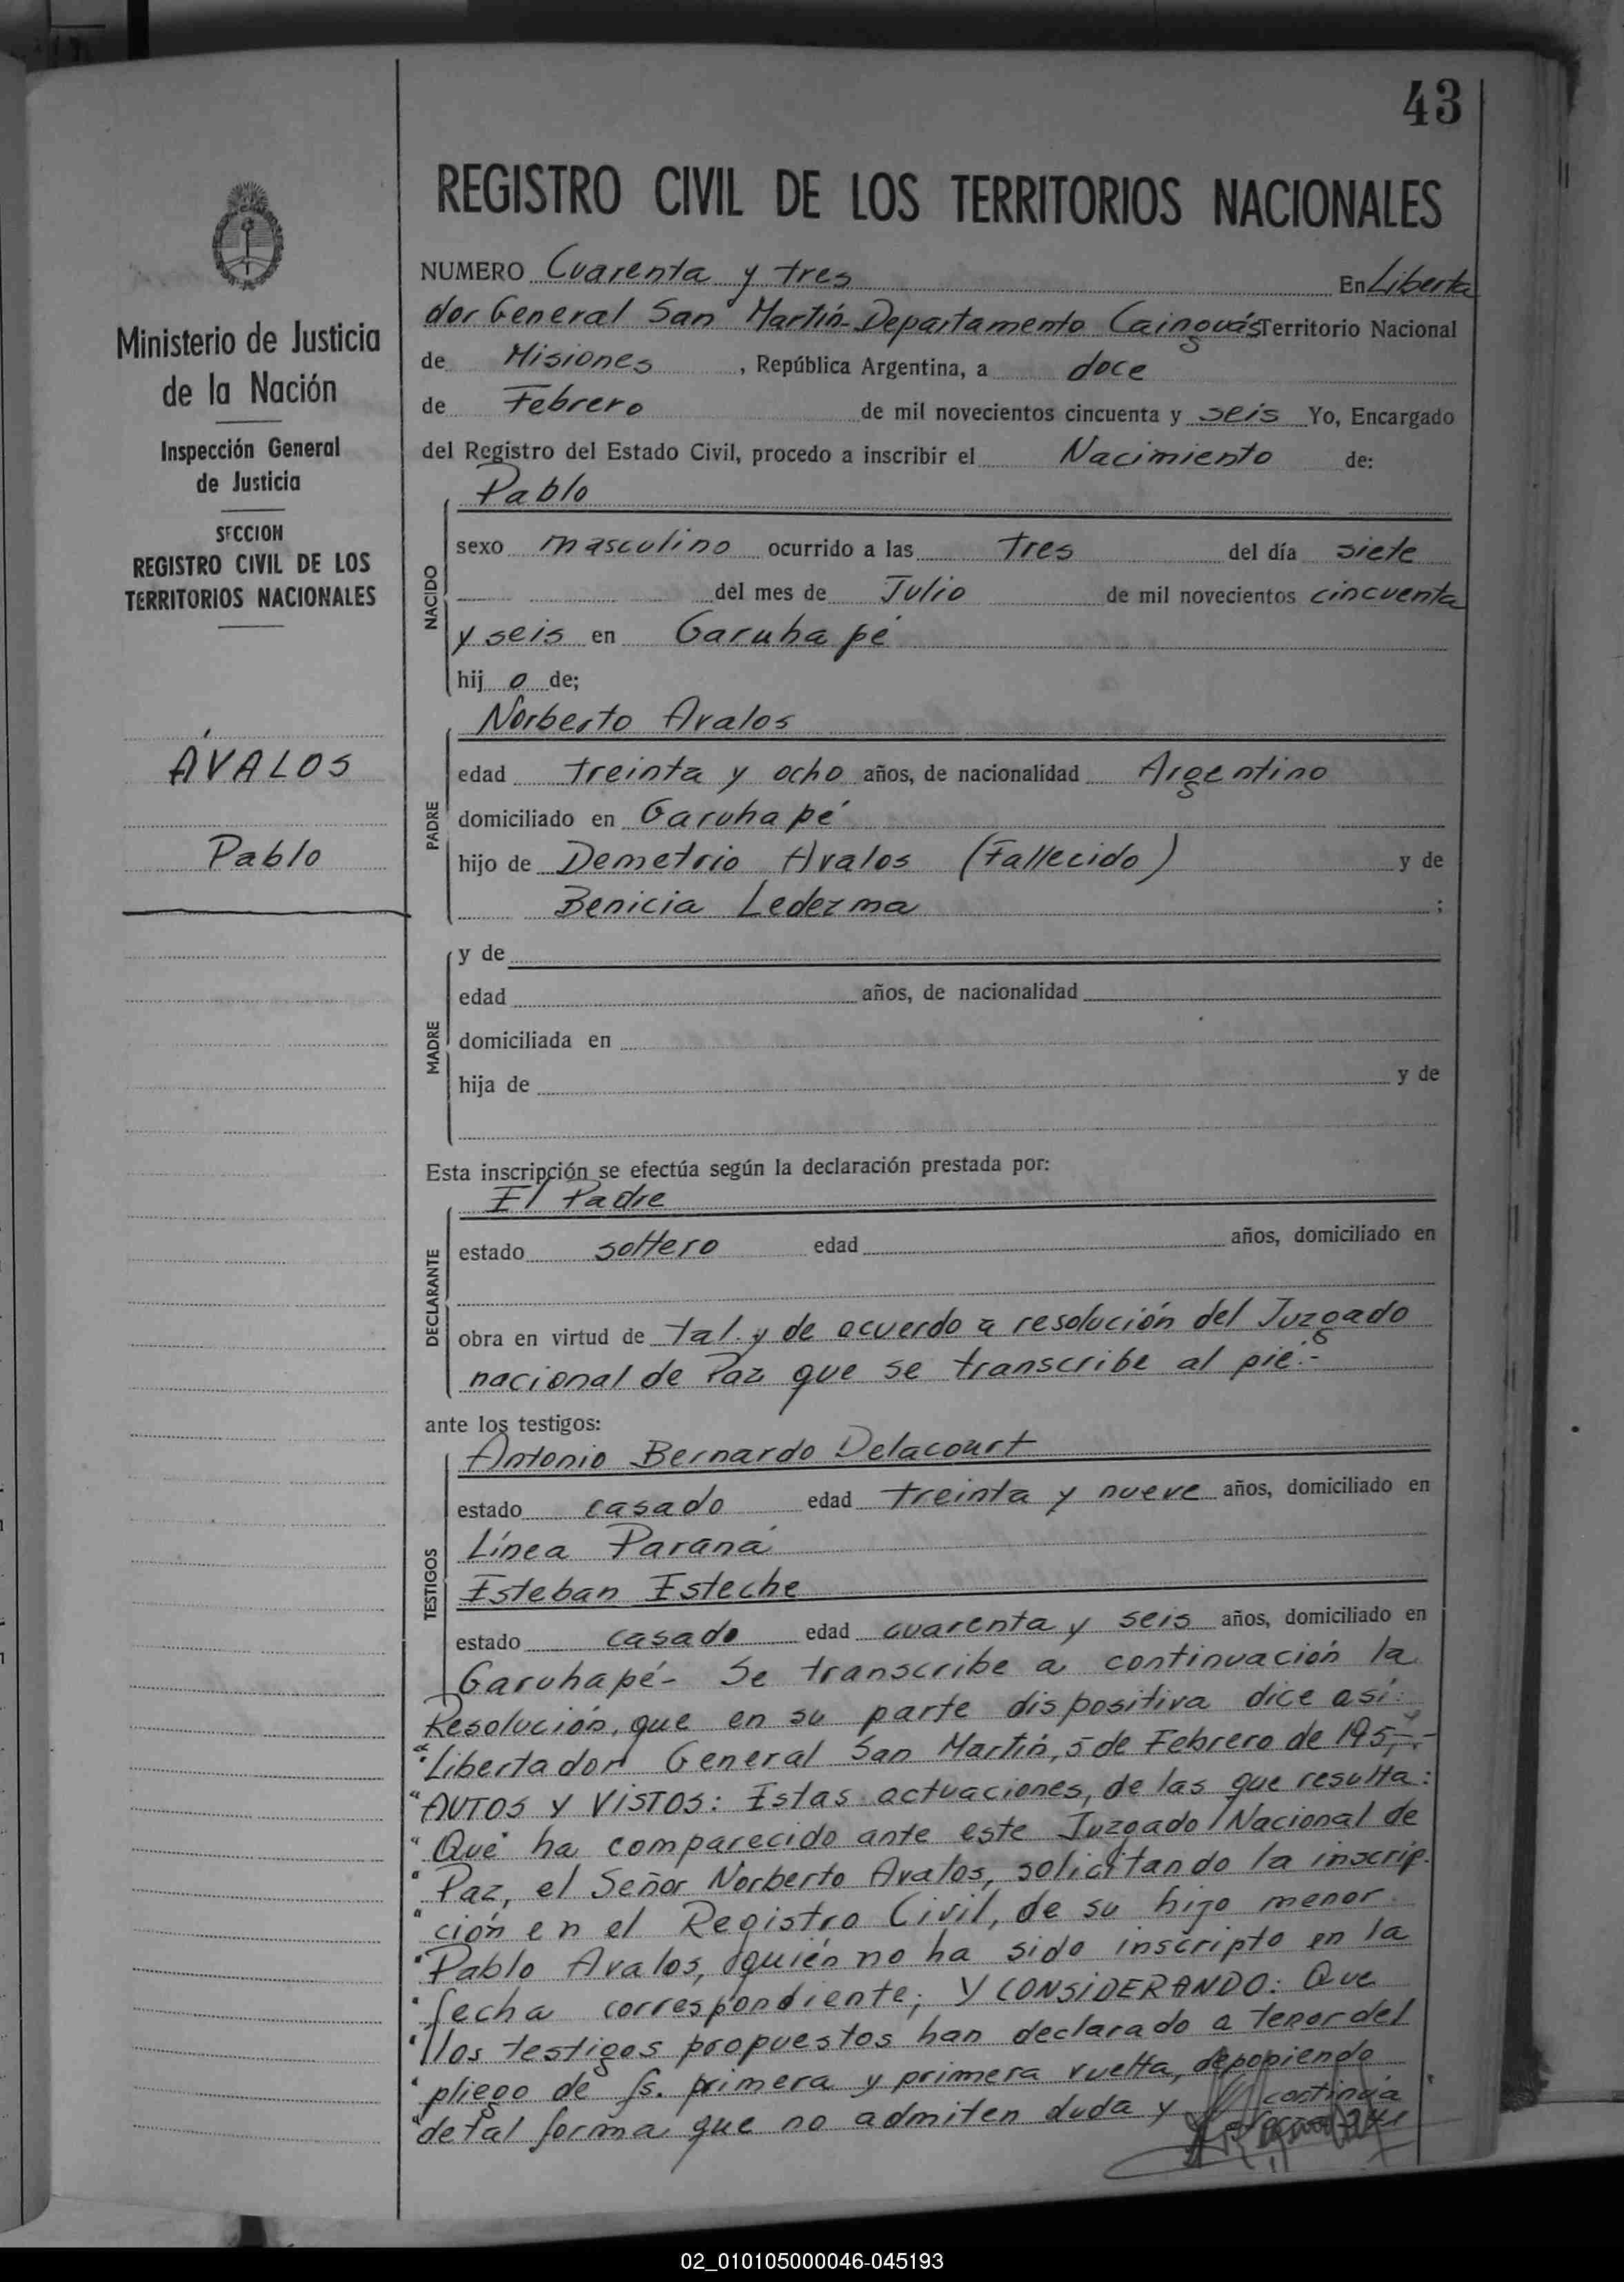 43
REGISTRO CIVIL DE LOS TERRITORIOS NACIONALES
Ministerio de Justicia
de la Nación
Inspección General
de Justicia
SECCION
REGISTRO CIVIL DE LOS
TERRITORIOS NACIONALES
ÁVALOS
Pablo
NUMERO Cuarenta y tres En Liberta
dor General San Martín-Departamento Cainguás Territorio Nacional
de Misiones, República Argentina, a doce
de Febrero de mil novecientos cincuenta y seis Yo, Encargado
del Registro del Estado Civil, procedo a inscribir el Nacimiento de:
Pablo
NACIDO
sexo masculino ocurrido a las tres del día siete
del mes de Julio de mil novecientos cincuenta
y seis en Garuhapé
hijo de;
Norberto Avalos
PADRE
edad treinta y ocho años, de nacionalidad Argentino
domiciliado en Garuhapé
hijo de Demetrio Avalos (Fallecido) y de
Benicia Ledezma ;
MADRE
y de
edad años, de nacionalidad
domiciliada en
hija de y de
Esta inscripción se efectúa según la declaración prestada por:
El Padre
DECLARANTE
estado soltero edad años, domiciliado en
obra en virtud de tal. y de acuerdo a resolución del Juzgado
nacional de Paz que se transcribe al pié.-
ante los testigos:
Antonio Bernardo Delacourt
TESTIGOS
estado casado edad treinta y nueve años, domiciliado en
Línea Paraná
Esteban Esteche
estado casado edad cuarenta y seis años, domiciliado en
Garuhapé- Se transcribe a continuación la
Resolución, que en su parte dispositiva dice así:
"Libertador General San Martín, 5 de Febrero de 195
"AUTOS Y VISTOS: Estas actuaciones, de las que resulta:
"Que ha comparecido ante este Juzgado Nacional de
"Paz, el Señor Norberto Avalos, solicitando la inscrip-
"ción en el Registro Civil, de su hijo menor
"Pablo Avalos, quién no ha sido inscripto en la
"fecha correspondiente; Y CONSIDERANDO: Que
"los testigos propuestos han declarado a tenor del
"pliego de fs. primera y primera vuelta, deponiendo
"de tal forma que no admiten duda y continúa
02_010105000046-045193